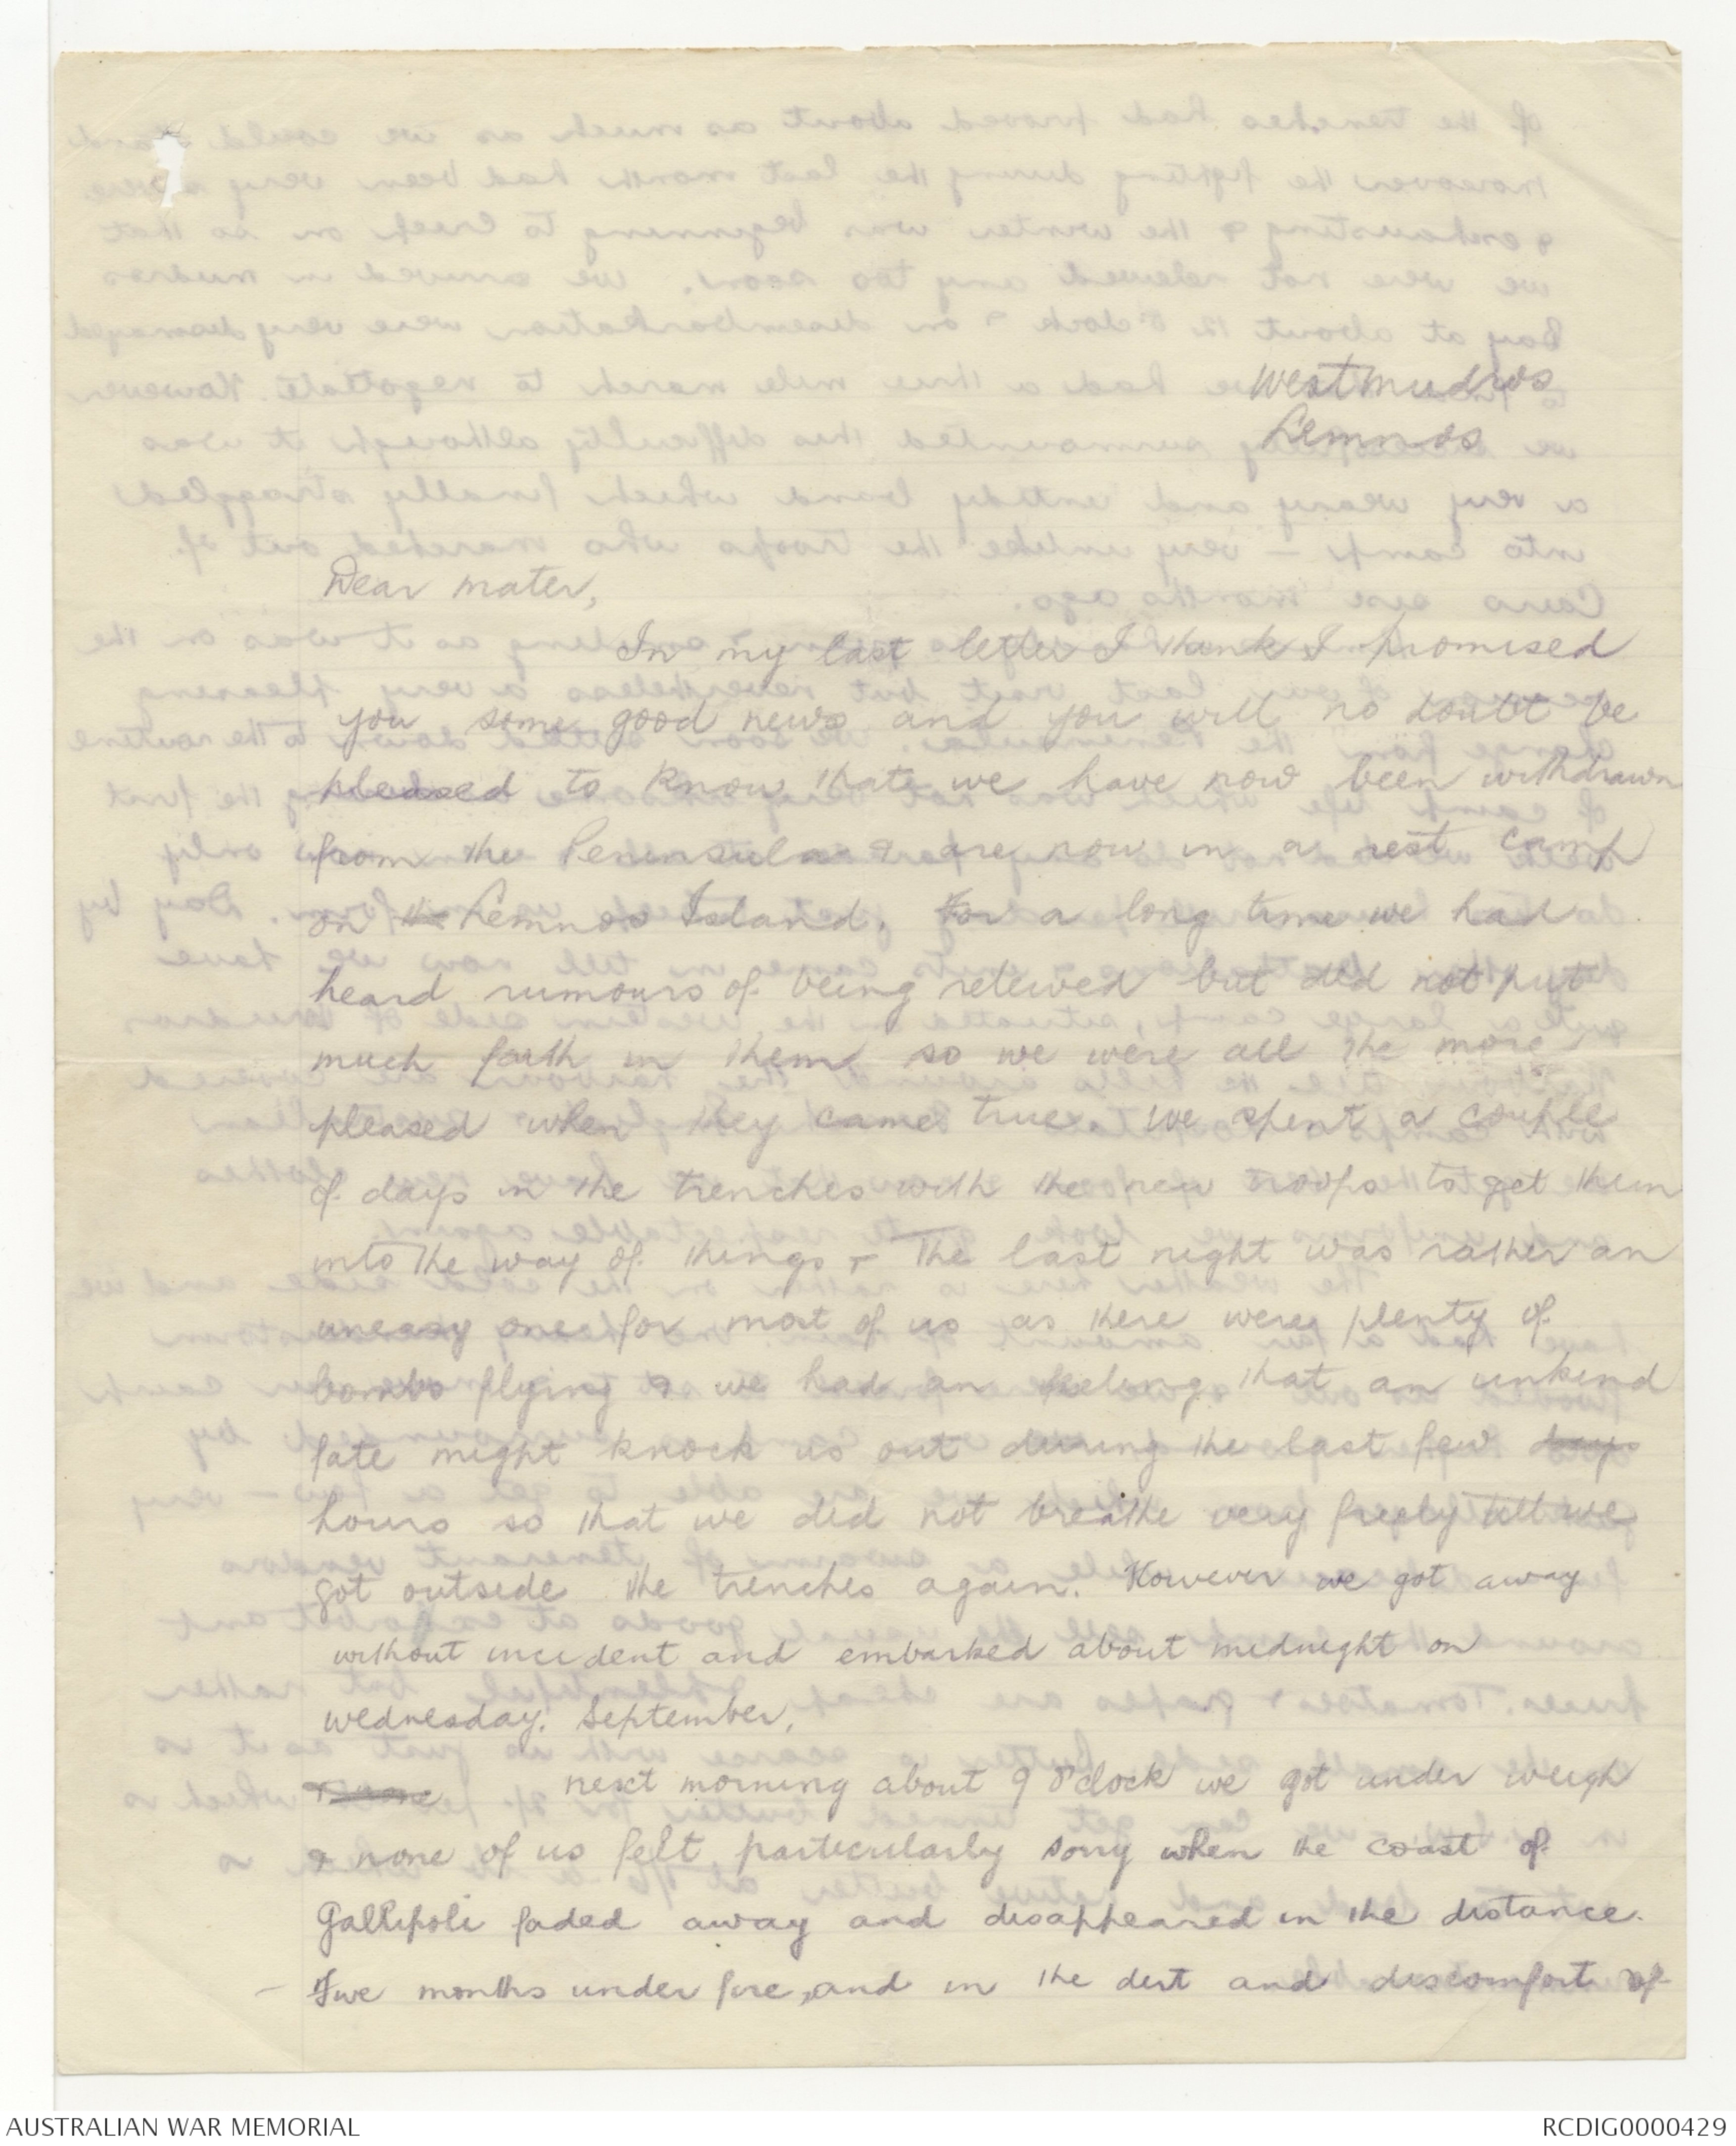 West Mudros
Lemnos
Dear Mater,
In my last letter I think I promised
you some good news and you will no doubt be
pleased to know that we have now been withdrawn
from the Peninsula & are now in a rest camp
on the Lemnos Island. For a long time we had
heard rumours of being releived but did not put
much faith in them so we were all the more
pleased when they came true. We spent a couple
of days in the trenches with the new troops to get them
into the way of things & The last night was rather an
uneasy one for most of us as there were plenty of
bombs flying & we had an feeling that an unkind
fate might knock us out during the last few days
hours so that we did not breathe very freely till we
got outside the trenches again. However we got away
without incident and embarked about midnight on
Wednesday. September.
& none next morning about 9 o'clock we got under weigh
& none of us felt particularly sorry when the coast of
Gallipoli faded away and disappeared in the distance.
- Five months under fire, and in the dirt and discomfort of
AUSTRALIAN WAR MEMORIAL
RCDIG0000429